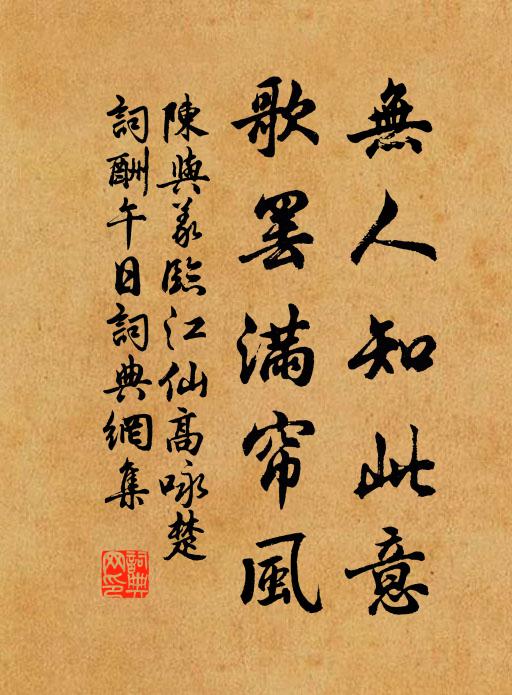 無人知此意
歌罷滿帘風
陳與義臨江仙高咏楚
詞酬午日詞典網集
詞典
网印